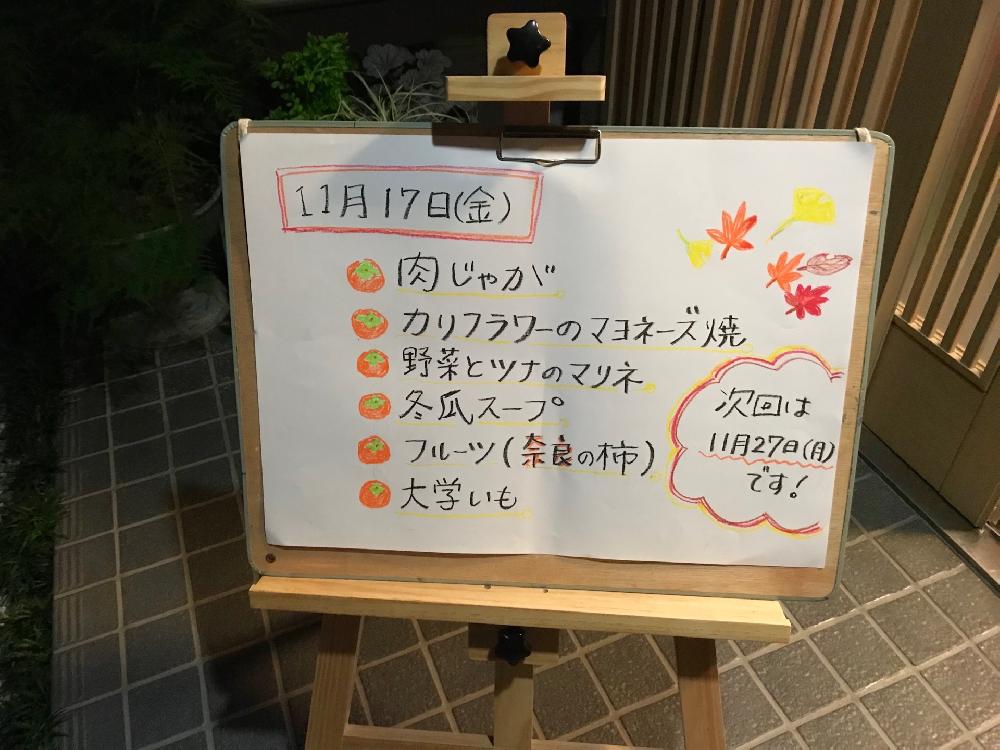 11月17日(金)
肉じゃが
カリフラワーのマヨネーズ焼
野菜とツナのマリネ
冬瓜スープ
フルーツ(奈良の柿)
大学いも
次回は
11月27日(月)
です!